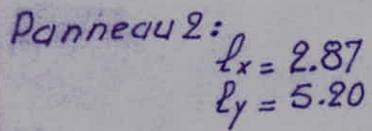 Panneau 2:
lx = 2.87
ly = 5.20